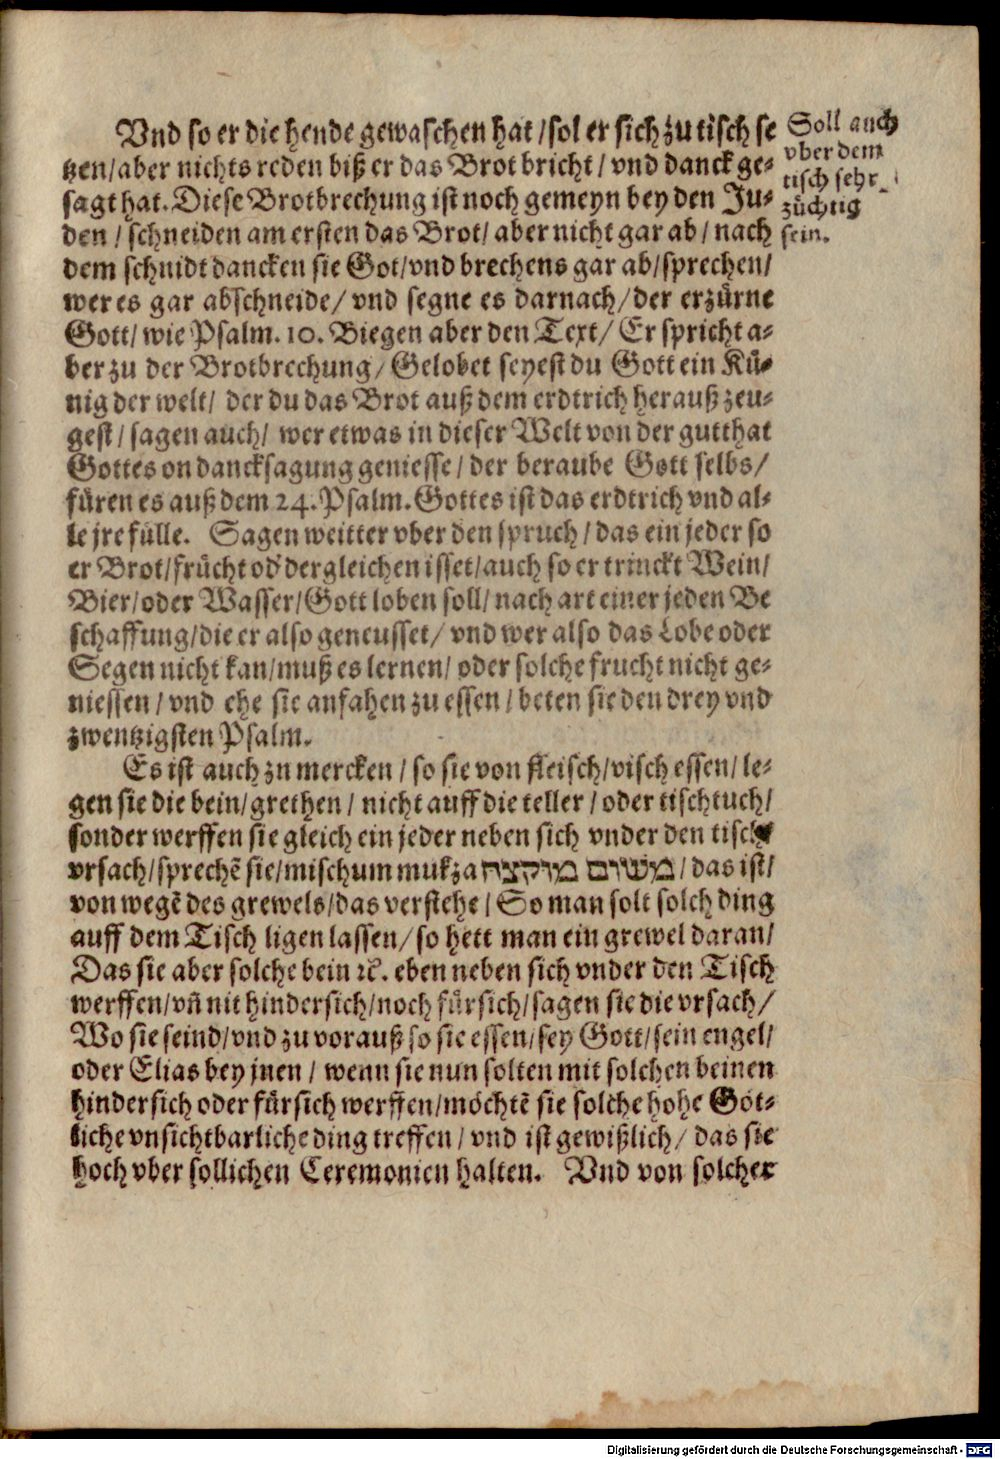 Vnd so er die hende gewaschen hat / sol er sich zu tisch se
tzen / aber nichts reden biß er das Brot bricht / vnd danck ge-
sagt hat. Diese Brotbrechung ist noch gemeyn bey den Ju-
den / schneiden am ersten das Brot / aber nicht gar ab / nach
dem schnidt dancken sie Got / vnd brechens gar ab / sprechen /
wer es gar abschneide / vnd segne es darnach / der erzürne
Gott / wie Psalm. 10. Biegen aber den Text / Er spricht a-
ber zu der Brotbrechung / Gelobet seyest du Gott ein Kü-
nig der welt / der du das Brot auß dem erdtrich herauß zeu-
gest / sagen auch / wer etwas in dieser Welt von der gutthat
Gottes on dancksagung geniesse / der beraube Gott selbs /
füren es auß dem 24. Psalm. Gottes ist das erdtrich vnd al-
le jre fülle. Sagen weitter vber den spruch / das ein jeder so
er Brot / frücht od' dergleichen isset / auch so er trinckt Wein /
Bier / oder Wasser / Gott loben soll / nach art einer jeden Be
schaffung / die er also geneusset / vnd wer also das Lobe oder
Segen nicht kan / muß es lernen / oder solche frucht nicht ge-
niessen / vnd ehe sie anfahen zu essen / beten sie den drey vnd
zwentzigsten Psalm.
Es ist auch zu mercken / so sie von fleisch / visch essen / le-
gen sie die bein / grethen / nicht auff die teller / oder tischtuch /
sonder werffen sie gleich ein jeder neben sich vnder den tisch
vrsach / sprechē sie / mischum mukza משום מוקצה / das ist /
von wegē des grewels / das verstehe / So man solt solch ding
auff dem Tisch ligen lassen / so hett man ein grewel daran /
Das sie aber solche bein ꝛc. eben neben sich vnder den Tisch
werffen / vñ nit hindersich / noch fürsich / sagen sie die vrsach /
Wo sie seind / vnd zu vorauß so sie essen / sey Gott / sein engel /
oder Elias bey jnen / wenn sie nun solten mit solchen beinen
hindersich oder fürsich werffen / möchtē sie solche hohe Göt-
liche vnsichtbarliche ding treffen / vnd ist gewißlich / das sie
hoch vber sollichen Ceremonien halten. Vnd von solcher
Soll auch
vber dem
tisch sehr
züchtig
sein.
Digitalisierung gefördert durch die Deutsche Forschungsgemeinschaft - DFG